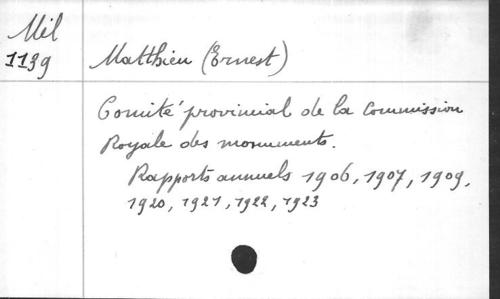 Mil
1139 Matthieu (Ernest)
Comité provincial de la Commission
Royale des monuments.
Rapports annuels 1906, 1907, 1909,
1920, 1921, 1922, 1923